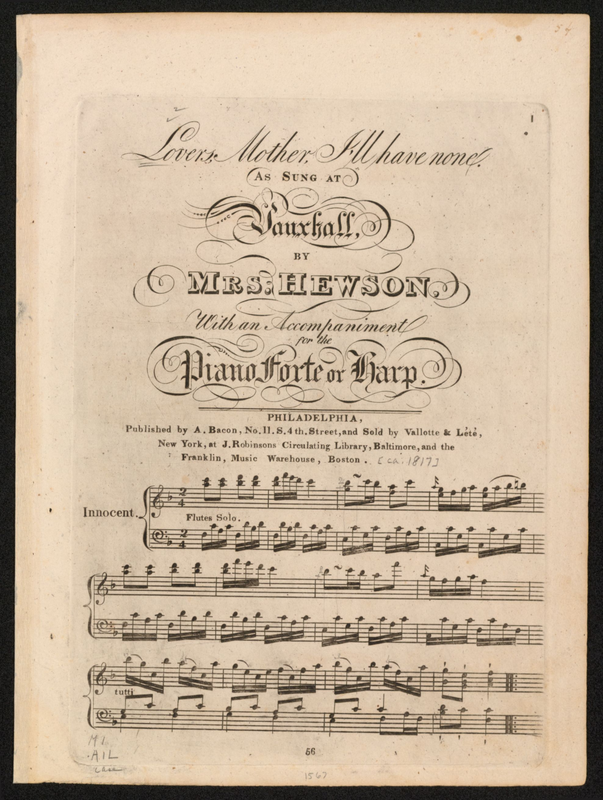 54
1
Lovers, Mother, I'll have none.
As Sung at
Vauxhall,
BY
Mrs. HEWSON.
With an Accompaniment
for the
Piano Forte or Harp.
PHILADELPHIA,
Published by A. Bacon, No. 11. S. 4th. Street, and Sold by Vallotte & Lété,
New York, at J. Robinsons Circulating Library, Baltimore, and the
Franklin, Music Warehouse, Boston. [ca. 1817]
Innocent.
2/4
Flutes Solo.
2/4
tutti
56
1567